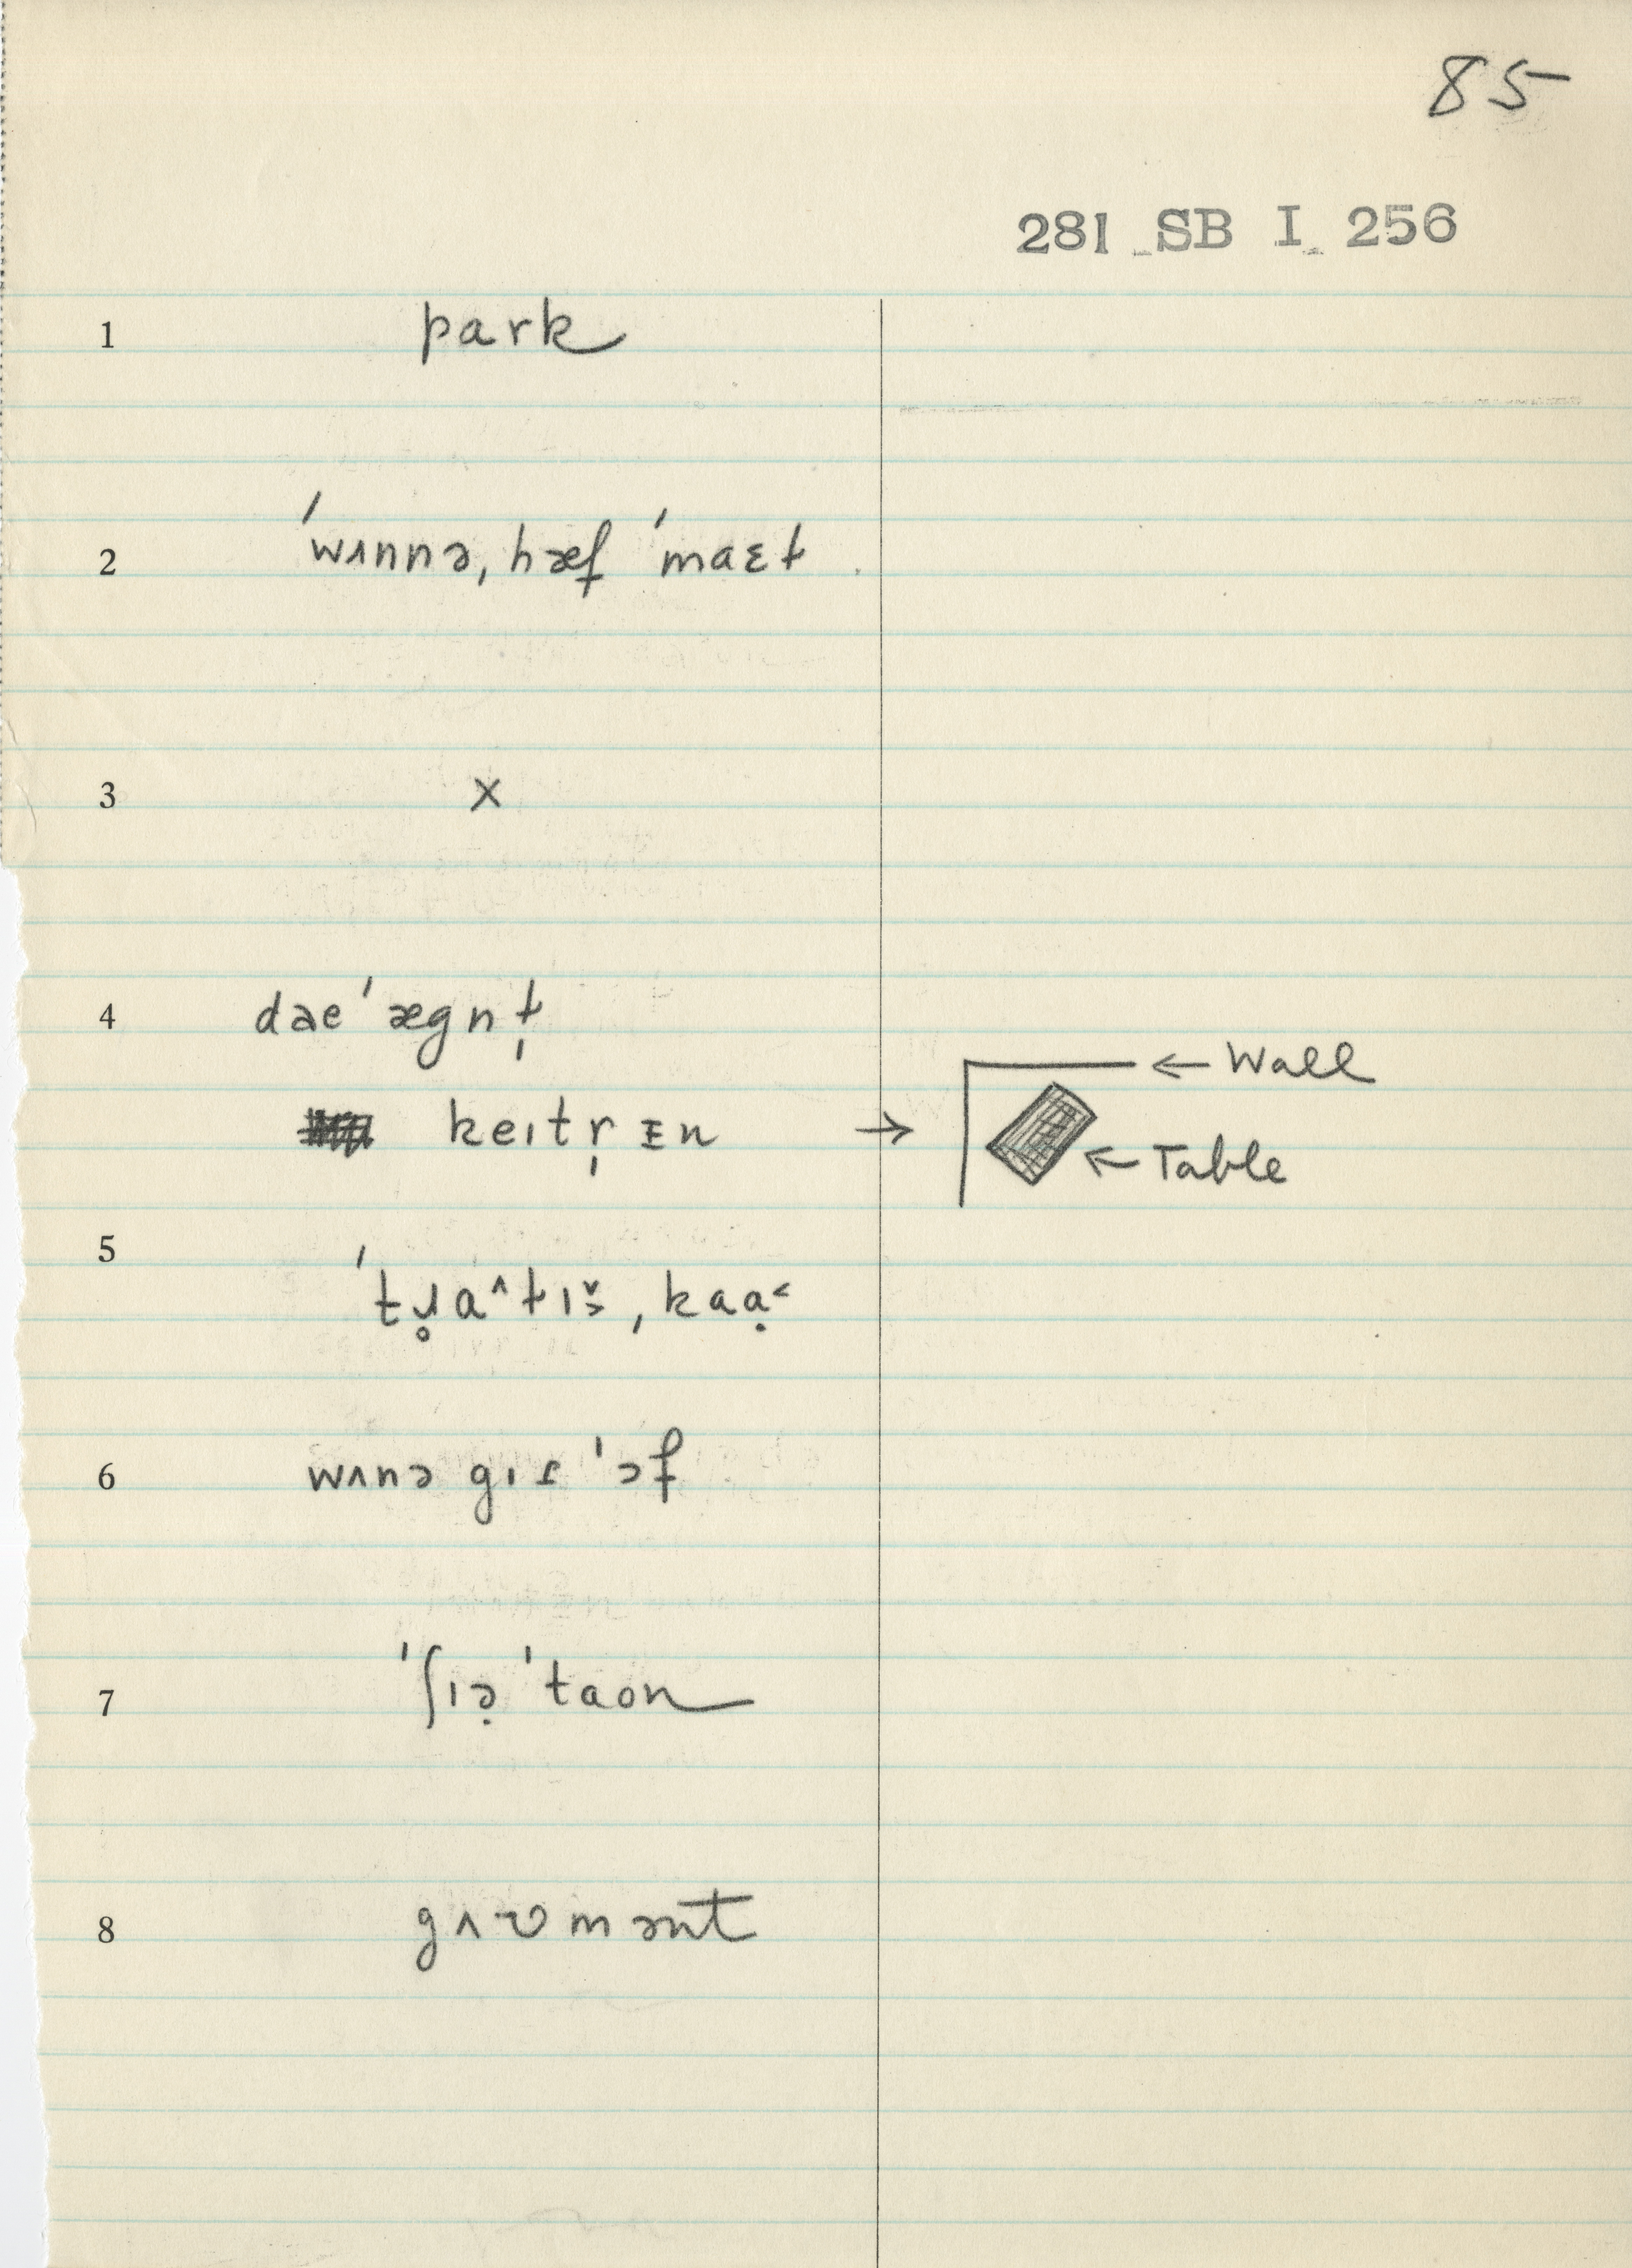 85
281 SB I 256
1 park
2 ˈwʌnnə, hæf ˈmaɛt
3 x
4 dəe ˈægnt̩
keɪtr̩ ᴇn → ← Wall
← Table
5 ˈtɹ̥a^tɪš, kaạ˂
6 wʌnə gɪɾ ˈɔf
7 ˈʃɪə̣ ˈtaon
8 gʌʋmənt